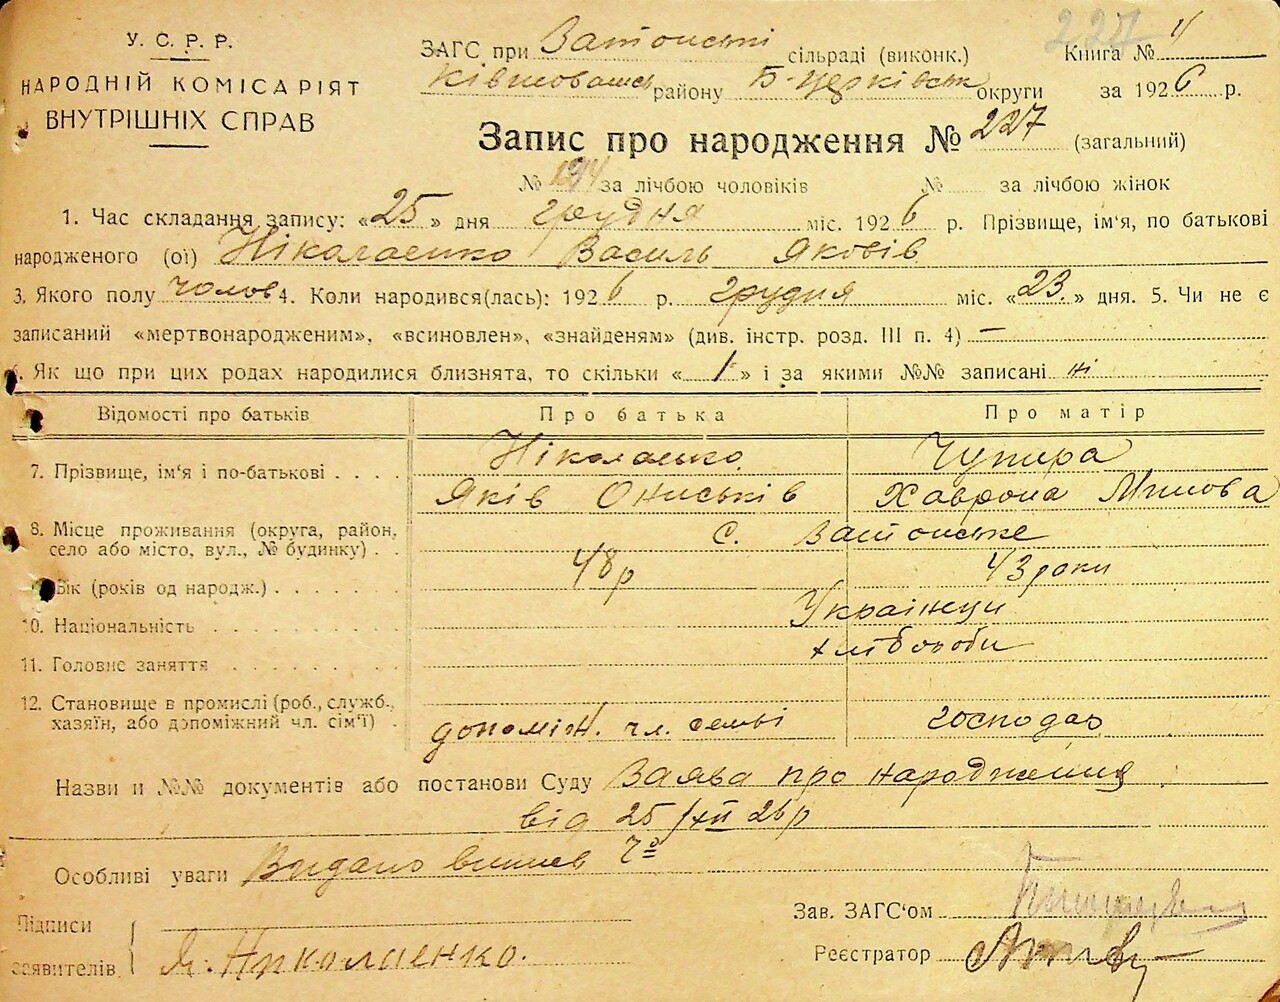 У. С. Р. Р.
НАРОДНІЙ КОМІСАРІЯТ
ВНУТРІШНІХ СПРАВ
227
ЗАГС при Затонські сільраді (виконк.) Книга № 4
Ківшовацьк району Б-Церківськ округи за 1926 р.
Запис про народження № 227 (загальний)
№ 194 за лічбою чоловіків № за лічбою жінок
1. Час складання запису: «25» дня грудня міс. 1926 р. Прізвище, ім'я, по батькові
народженого (ої) Ніколаенко Василь Яковів
3. Якого полу чолов 4. Коли народився(лась): 1926 р. грудня міс. «23.» дня. 5. Чи не є
записаний «мертвонародженим», «всиновлен», «знайденям» (див. інстр. розд. III п. 4) —
6. Як що при цих родах народилися близнята, то скільки «1» і за якими №№ записані ні
Відомості про батьків Про батька Про матір
7. Прізвище, ім'я і по-батькові . . . . Ніколаенко Чупира
Яків Ониськів Хаврона
8. Місце проживання (округа, район, село або місто, вул., № будинку) . . с. Затонське
Вік (років од народж.) . . . . . . . 48 р 43 роки
10. Національність . . . . . . . . . . Українци
11. Головне заняття . . . . . . . . . хлібороби
12. Становище в промислі (роб., служб., хазяїн, або допоміжний чл. сім'ї) . допоміж. чл. семьі господар
Назви и №№ документів або постанови Суду Заява про народження
від 25/XII 26 р
Особливі уваги Видано
Підписи
заявителів Я. Николаенко.
Зав. ЗАГС'ом
Реєстратор